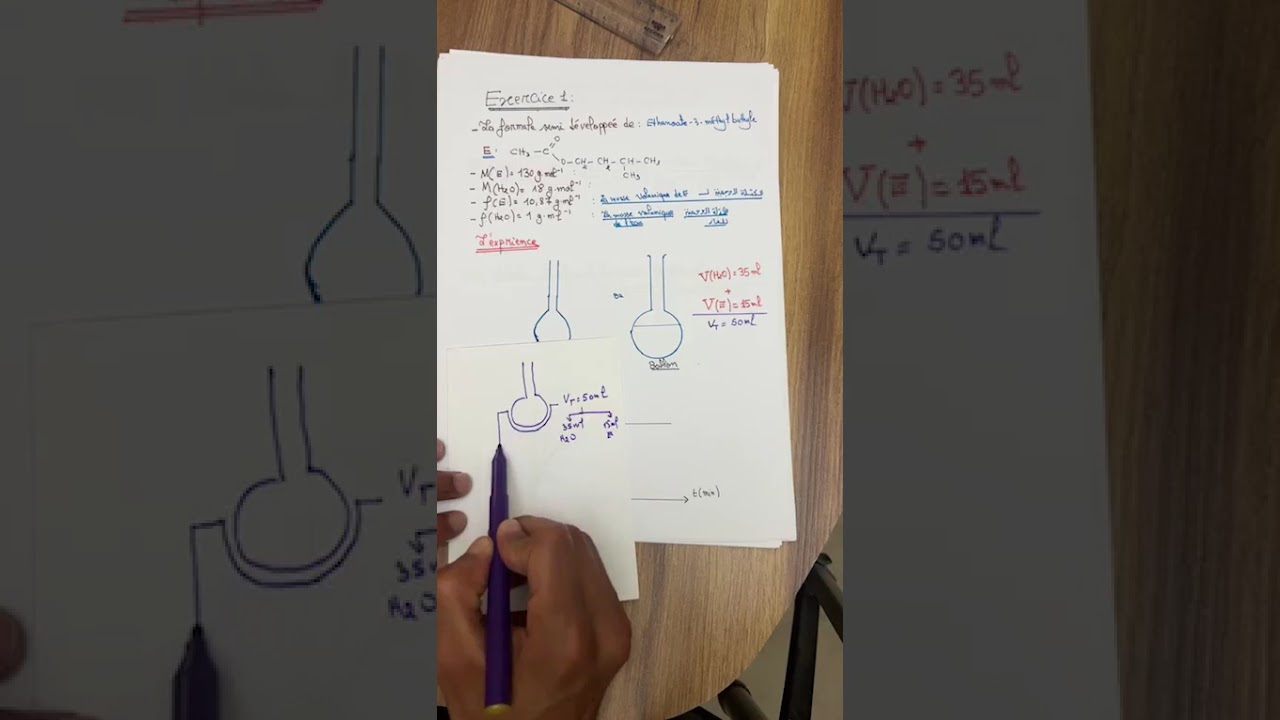 Exercice 1:
- La formule semi développée de : Ethanoate-3-méthyl butyle
E: CH₃ - C
O
O-CH₂-CH₂-CH-CH₃
CH₃
- M(E) = 130 g.mol⁻¹ :
- M(H₂O) = 18 g.mol⁻¹ :
- ρ(E) = 10,87 g.ml⁻¹ : La masse volumique de E →
- ρ(H₂O) = 1 g.ml⁻¹ : La masse volumique
de l'eau
L'éxprience
V(H₂O) = 35 ml
+
V(E) = 15 ml
V_T = 50 ml
Ballon
V_T = 50 ml
35 ml
15 ml
H₂O
E
t (min)
V(H₂O) = 35 ml
+
V(E) = 15 ml
V_T = 50 ml
V_T
35
H₂O